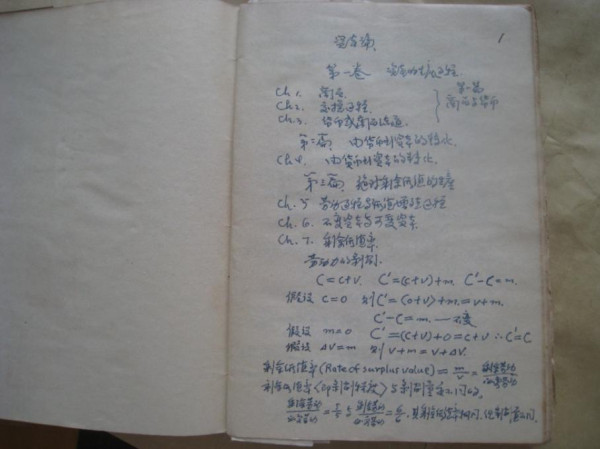 资本论
1
第一卷 资本的生产过程
Ch 1. 商品
Ch 2. 交换过程
Ch. 3. 货币或商品流通
第一篇
商品与货币
第二篇 由货币到资本的转化
Ch 4. 由货币到资本的转化
第三篇 绝对剩余价值的生产
Ch. 5 劳动过程与价值增殖过程
Ch. 6. 不变资本与可变资本
Ch. 7. 剩余价值率
劳动力的剥削
C = c+v. C' = (c+v)+m C'-C = m.
假设 c = 0 则 C' = (0+v)+m. = v+m.
C'-C = m. — 不变
假设 m=0 C' = (c+v)+0 = c+v ∴ C'=C
假设 Δv=m 则 v+m = v+Δv.
剩余价值率 (Rate of surplus value) = m/v = 剩余劳动/必要劳动
剩余价值率(即剥削程度)与剥削量是不同的.
剩余劳动/必要劳动 = 5/5 与 剩余劳动/必要劳动 = 6/6. 其剩余价值率相同, 但剥削量不同.